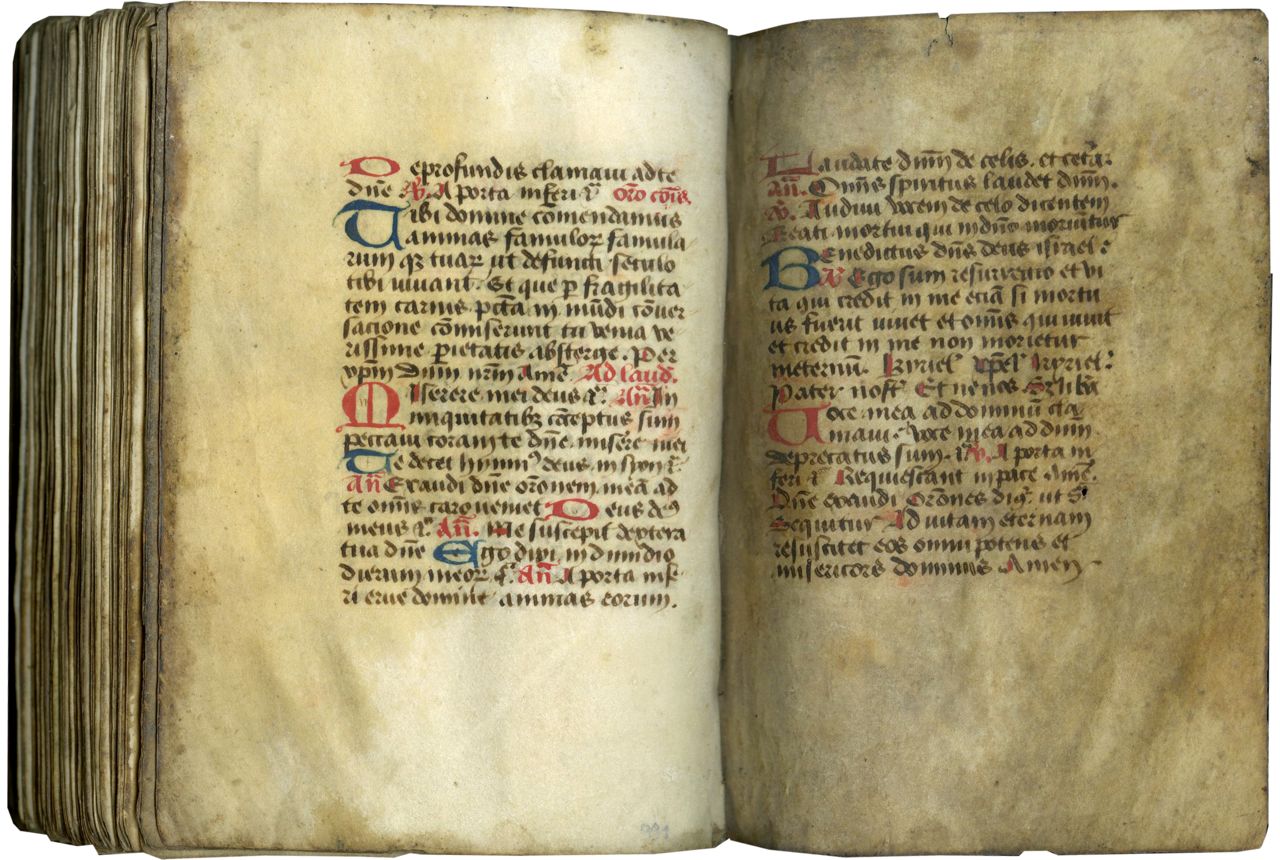 De profundis clamavi ad te
dn̄e V̉. A porta inferi r̄ Oro cōis
Tibi domine cōmendamus
animas famuloꝝ famula
rum qꝫ tuaꝝ ut defuncti seculo
tibi vivant. Et que ꝑ fragilita
tem carnis pctā in mūdi cōver
sacione cōmiserunt tu venia ve
rissime pietatis absterge. Per
xpm̄ dnm̄ nrm̄ Amē Ad laud.
Miserere mei deus r̄. An̄ In
iniquitatibꝫ cōceptus sum
peccavi coram te dn̄e misere mei
Te decet himn̉ deus in syon r̄.
An̄ Exaudi dn̄e orōnem meā ad
te omīs caro veniet Deus dẻ
meus r̄. An̄. Me suscepit dextera
tua dn̄e Ego dixi in dimidio
dierum meoꝝ r̄. An̄ A porta infe
ri erue domine animas eorum.
Laudate dnm̄ de celis. et ceterꝝ
An̄. Omīs spiritus laudet dnm̄.
V̉. Audivi vocem de celo dicentem
Beati mortui qui in dn̄o moriūtur
Benedictus dn̄s deus israel r̄
An̄ Ego sum resurrectio et vi
ta qui credit in me eciā si mortu
us fuerit vivet et omīs qui vivit
et credit in me non morietur
in eternum. kyriel̉ xp̄el̉ kyriel̉.
Pater nost̉ Et ne nos
Voce mea ad dominū cla
mavi. voce mea ad dnm̄
deprecatus sum. r̄ V̉. A porta in
feri r̄ Requiescant in pace Amē.
Dn̄e exaudi Orōnes ut s̉
Sequitur Ad vitam eternam
resuscitet eos omnipotens et
misericors dominus Amen